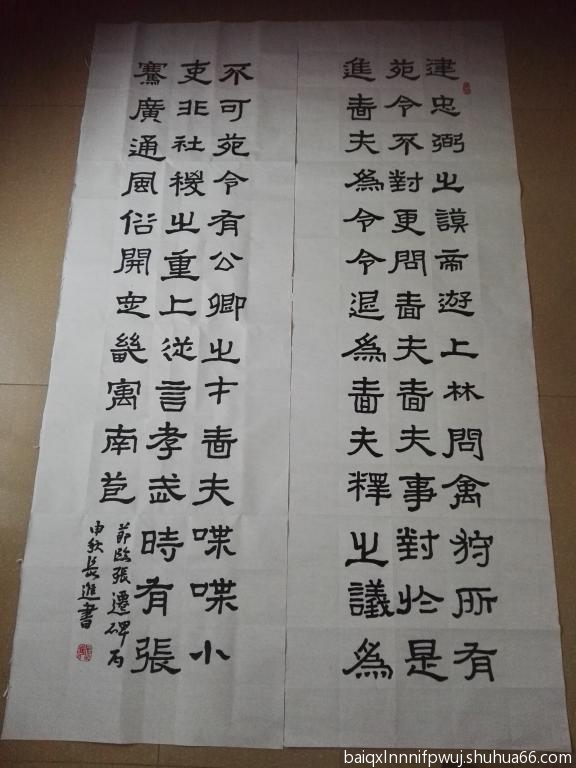 建忠弼之謨帝遊上林問禽狩所有
苑令不對更問嗇夫嗇夫事對於是
進嗇夫為令令退為嗇夫釋之議為
不可苑令有公卿之才嗇夫喋喋小
吏非社稷之重上從言孝武時有張
騫廣通風俗開定畿寓南苞
節臨張遷碑丙
申秋進書
baiqxlnnnifpwuj.shuhua66.com